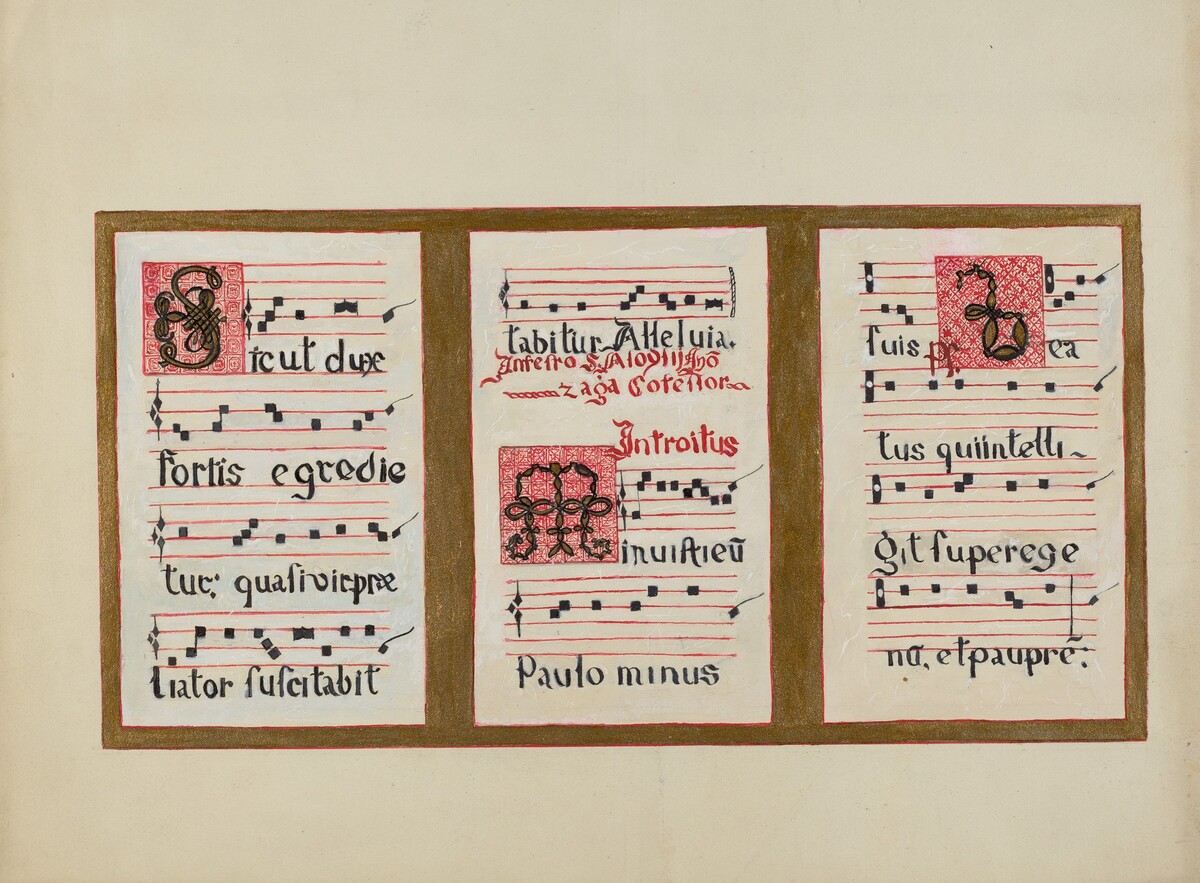 Sicut dux
fortis egredie
tur: quasi vir præ
liator suscitabit
tabitur Alleluia.
Infesto S. Aloysii
zaga Cofessor
Introitus
Minuisti eū
Paulo minus
suis ps. Bea
tus qui intelli~
git super ege
nū, et pauprē: